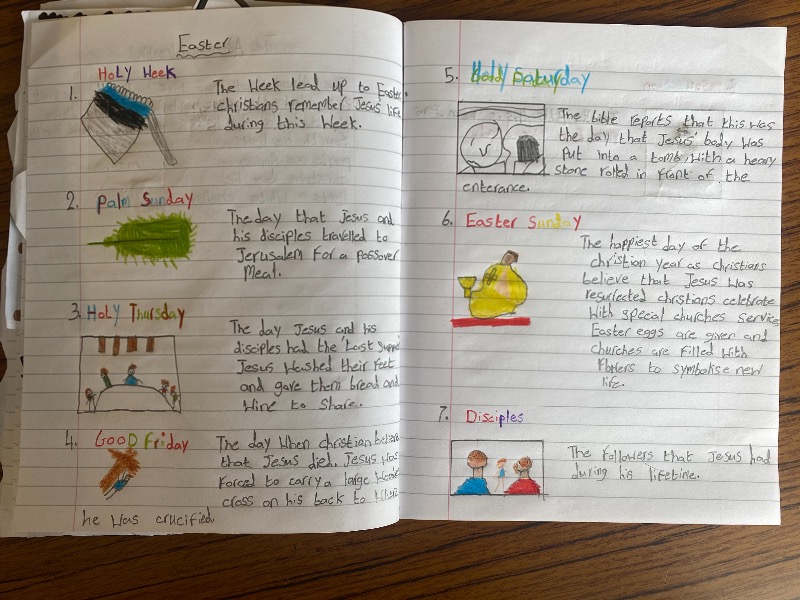 Easter
1. Holy Week
The Week lead up to Easter
christians remember Jesus' life
during this Week.
2. Palm Sunday
The day that Jesus and
his disciples travelled to
Jerusalem for a passover
Meal.
3. Holy Thursday
The day Jesus and his
disciples had the 'Last Supper
Jesus Washed their feet
and gave them bread and
Wine to Share.
4. Good Friday
The day When christian
that Jesus died. Jesus Was
Forced to carry a large
cross on his back to
he Was crucified
5. Holy Saturday
The bible reports that this Was
the day that Jesus' body Was
Put into a tomb, With a heavy
stone rolled in front of the
enterance.
6. Easter Sunday
The happiest day of the
christian year as christians
believe that Jesus Was
resurrected christians celebrate
With special churches
Easter eggs are given and
churches are filled With
Flowers to symbolise new
life.
7. Disciples
The followers that Jesus had
during his lifetime.